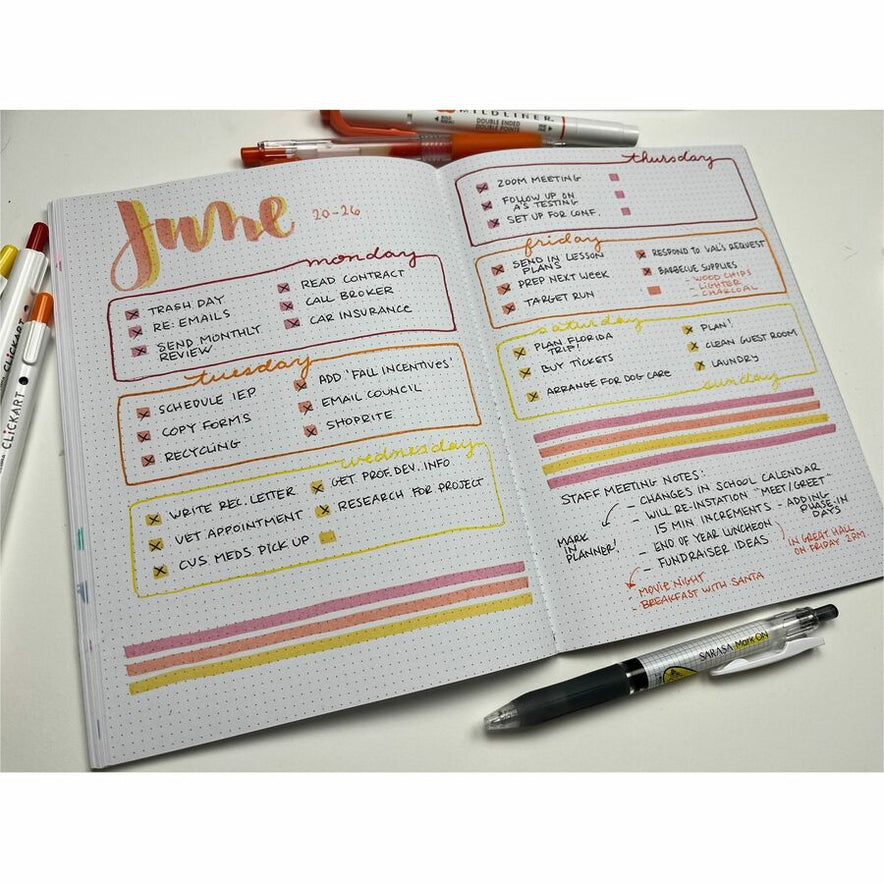 June 20-26
monday
TRASH DAY
RE: EMAILS
SEND MONTHLY
REVIEW
READ CONTRACT
CALL BROKER
CAR INSURANCE
tuesday
SCHEDULE IEP
COPY FORMS
RECYCLING
ADD 'FALL INCENTIVES'
EMAIL COUNCIL
SHOPRITE
wednesday
WRITE REC. LETTER
VET APPOINTMENT
CVS MEDS PICK UP
GET PROF. DEV. INFO
RESEARCH FOR PROJECT
thursday
ZOOM MEETING
FOLLOW UP ON
A'S TESTING
SET UP FOR CONF.
friday
SEND IN LESSON
PLANS
PREP NEXT WEEK
TARGET RUN
RESPOND TO VAL'S REQUEST
BARBECUE SUPPLIES
- WOOD CHIPS
- LIGHTER
- CHARCOAL
saturday
PLAN FLORIDA
TRIP!
BUY TICKETS
ARRANGE FOR DOG CARE
PLAN!
CLEAN GUEST ROOM
LAUNDRY
sunday
STAFF MEETING NOTES:
- CHANGES IN SCHOOL CALENDAR
- WILL RE-INSTATION "MEET/GREET"
15 MIN INCREMENTS
- ADDING
PHASE-IN
DAYS
MARK
IN
PLANNER!
- END OF YEAR LUNCHEON
IN GREAT HALL
ON FRIDAY 2PM
- FUNDRAISER IDEAS
- MOVIE NIGHT
- BREAKFAST WITH SANTA
DOUBLE ENDED
DOUBLE POINTS
CLICKART
CLICKART
SARASA Mark ON